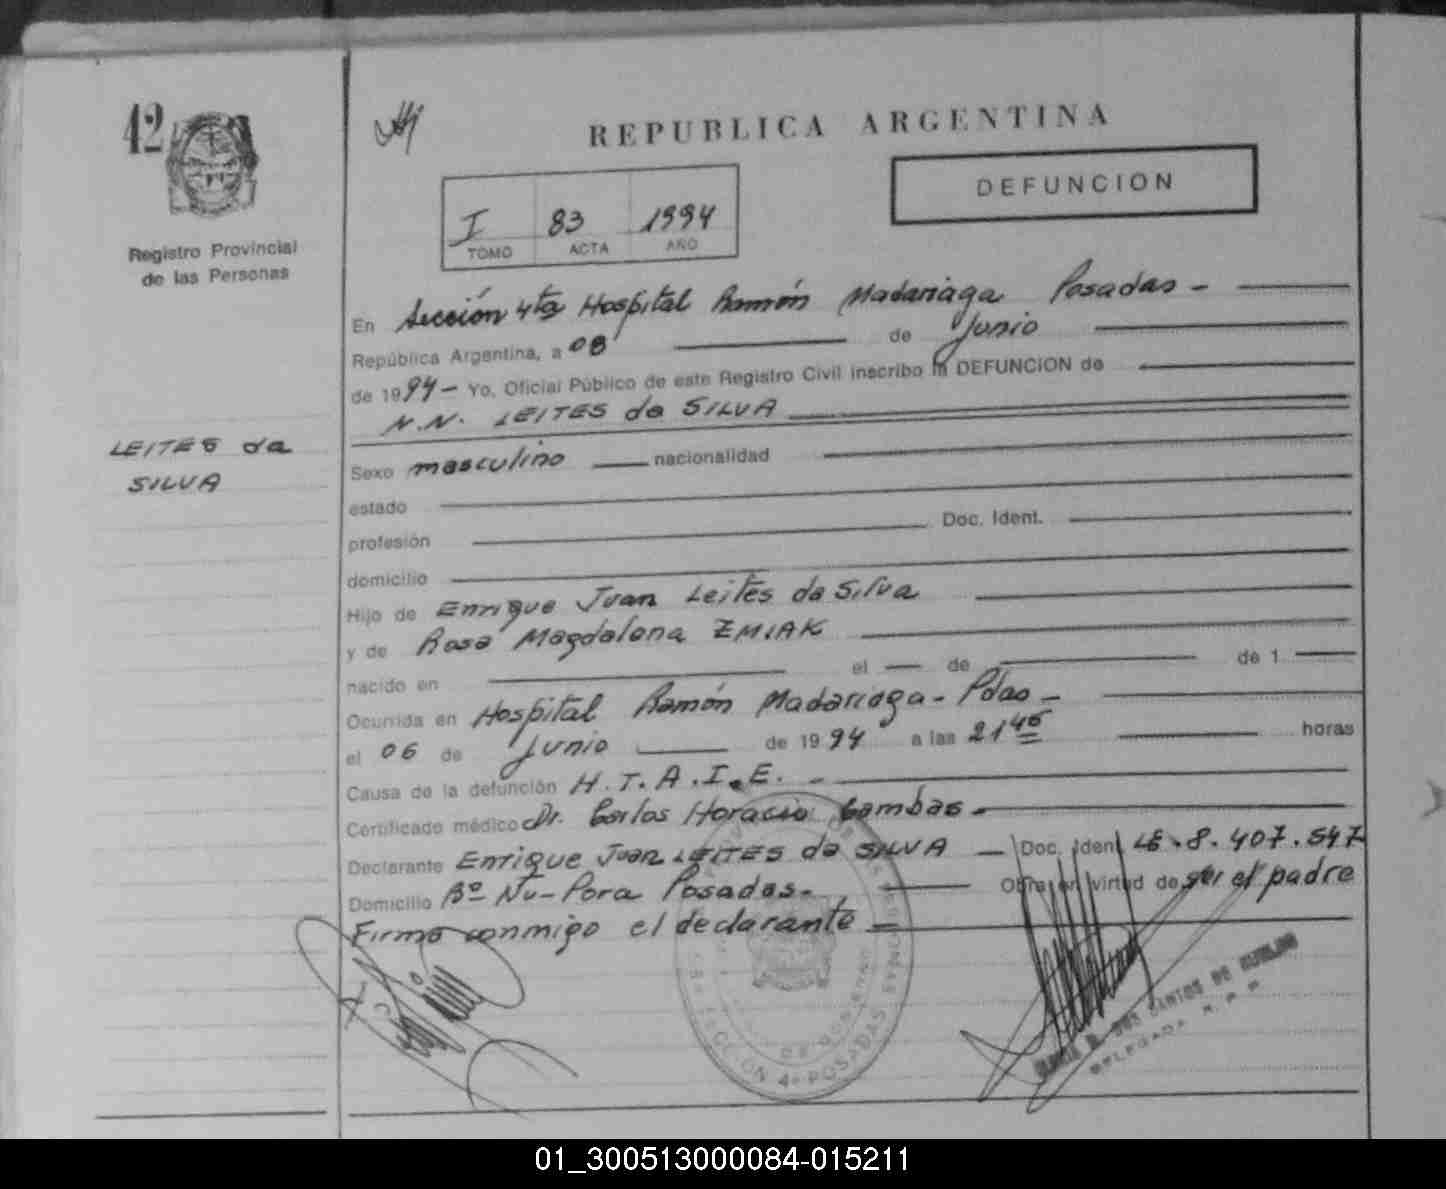 42
REPUBLICA ARGENTINA
DEFUNCION
I 83 1994
TOMO ACTA AÑO
Registro Provincial
de las Personas
En Sección 4ta Hospital Ramón Madariaga Posadas -
República Argentina, a 08 de Junio
de 1994 - Yo, Oficial Público de este Registro Civil inscribo la DEFUNCION de
N.N. LEITES da SILVA
LEITES da
SILVA
Sexo masculino nacionalidad
estado
profesión Doc. Ident.
domicilio
Hijo de Enrique Juan Leites da Silva
y de Rosa Magdalena ZMIAK
nacido en el de de 1
Ocurrida en Hospital Ramón Madariaga - Pdas -
el 06 de Junio de 1994 a las 21 45 horas
Causa de la defunción H.T.A.I.E. -
Certificado médico Dr. Carlos Horacio Gambas -
Declarante Enrique Juan LEITES da SILVA - Doc. Ident. LE. 8.407.547
Domicilio Bº Ñu-Pora Posadas - Obra en virtud de ser el padre
Firma conmigo el declarante
SECCION 4ª POSADAS
DOS SANTOS DE
DELEGADA R. P. P.
01_300513000084-015211